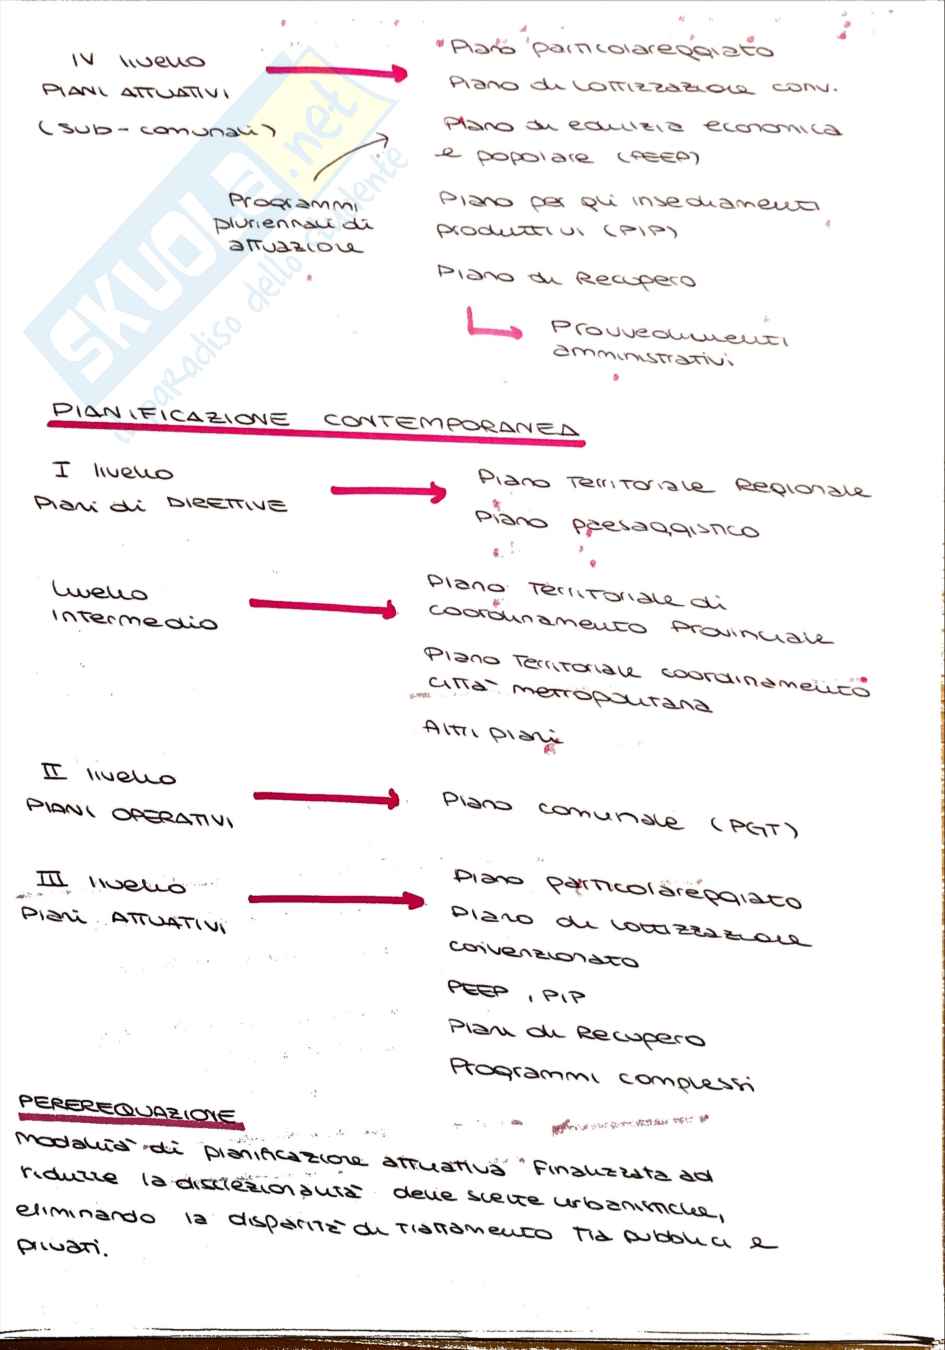 IV livello
PIANI ATTUATIVI
(sub-comunali)
Programmi
pluriennali di
attuazione
Piano particolareggiato
Piano di lottizzazione conv.
Piano di edilizia economica
e popolare (PEEP)
Piano per gli insediamenti
produttivi (PIP)
Piano di Recupero
Provvedimenti
amministrativi
SKUOLA.net
il paradiso dello studente
PIANIFICAZIONE CONTEMPORANEA
I livello
Piani di DIRETTIVE
Piano Territoriale Regionale
Piano paesaggistico
livello
intermedio
Piano Territoriale di
coordinamento Provinciale
Piano Territoriale coordinamento
città metropolitana
Altri piani
II livello
PIANI OPERATIVI
Piano comunale (PGT)
III livello
Piani ATTUATIVI
Piano particolareggiato
Piano di lottizzazione
convenzionato
PEEP, PIP
Piani di Recupero
Programmi complessi
PEREREQUAZIONE
Modalità di pianificazione attuativa finalizzata ad
ridurre la discrezionalità delle scelte urbanistiche,
eliminando la disparità di trattamento tra pubblici e
privati.